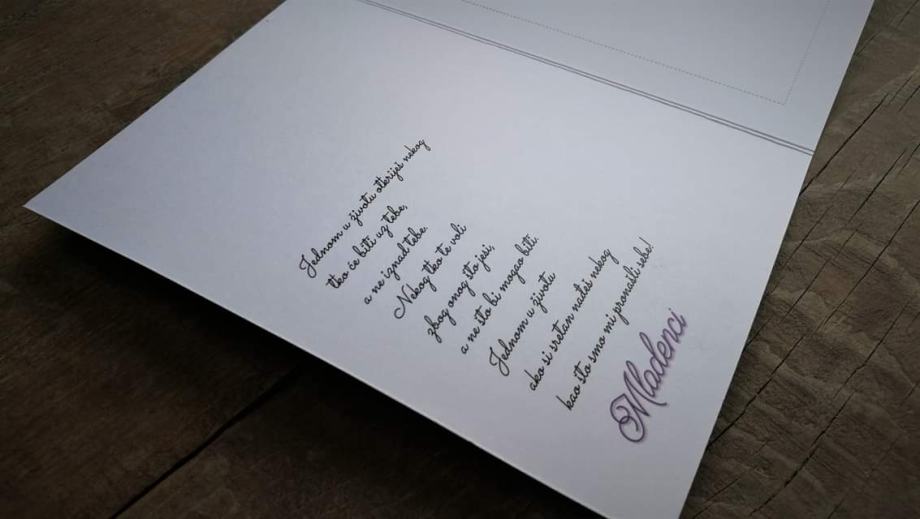 Jednom u životu otkriješ nekog
tko će biti uz tebe,
a ne iznad tebe.
Nekog tko te voli
zbog onog što jesi,
a ne što bi mogao biti.
Jednom u životu
ako si sretan nađeš nekog
kao što smo mi pronašli sebe!
Mladenci